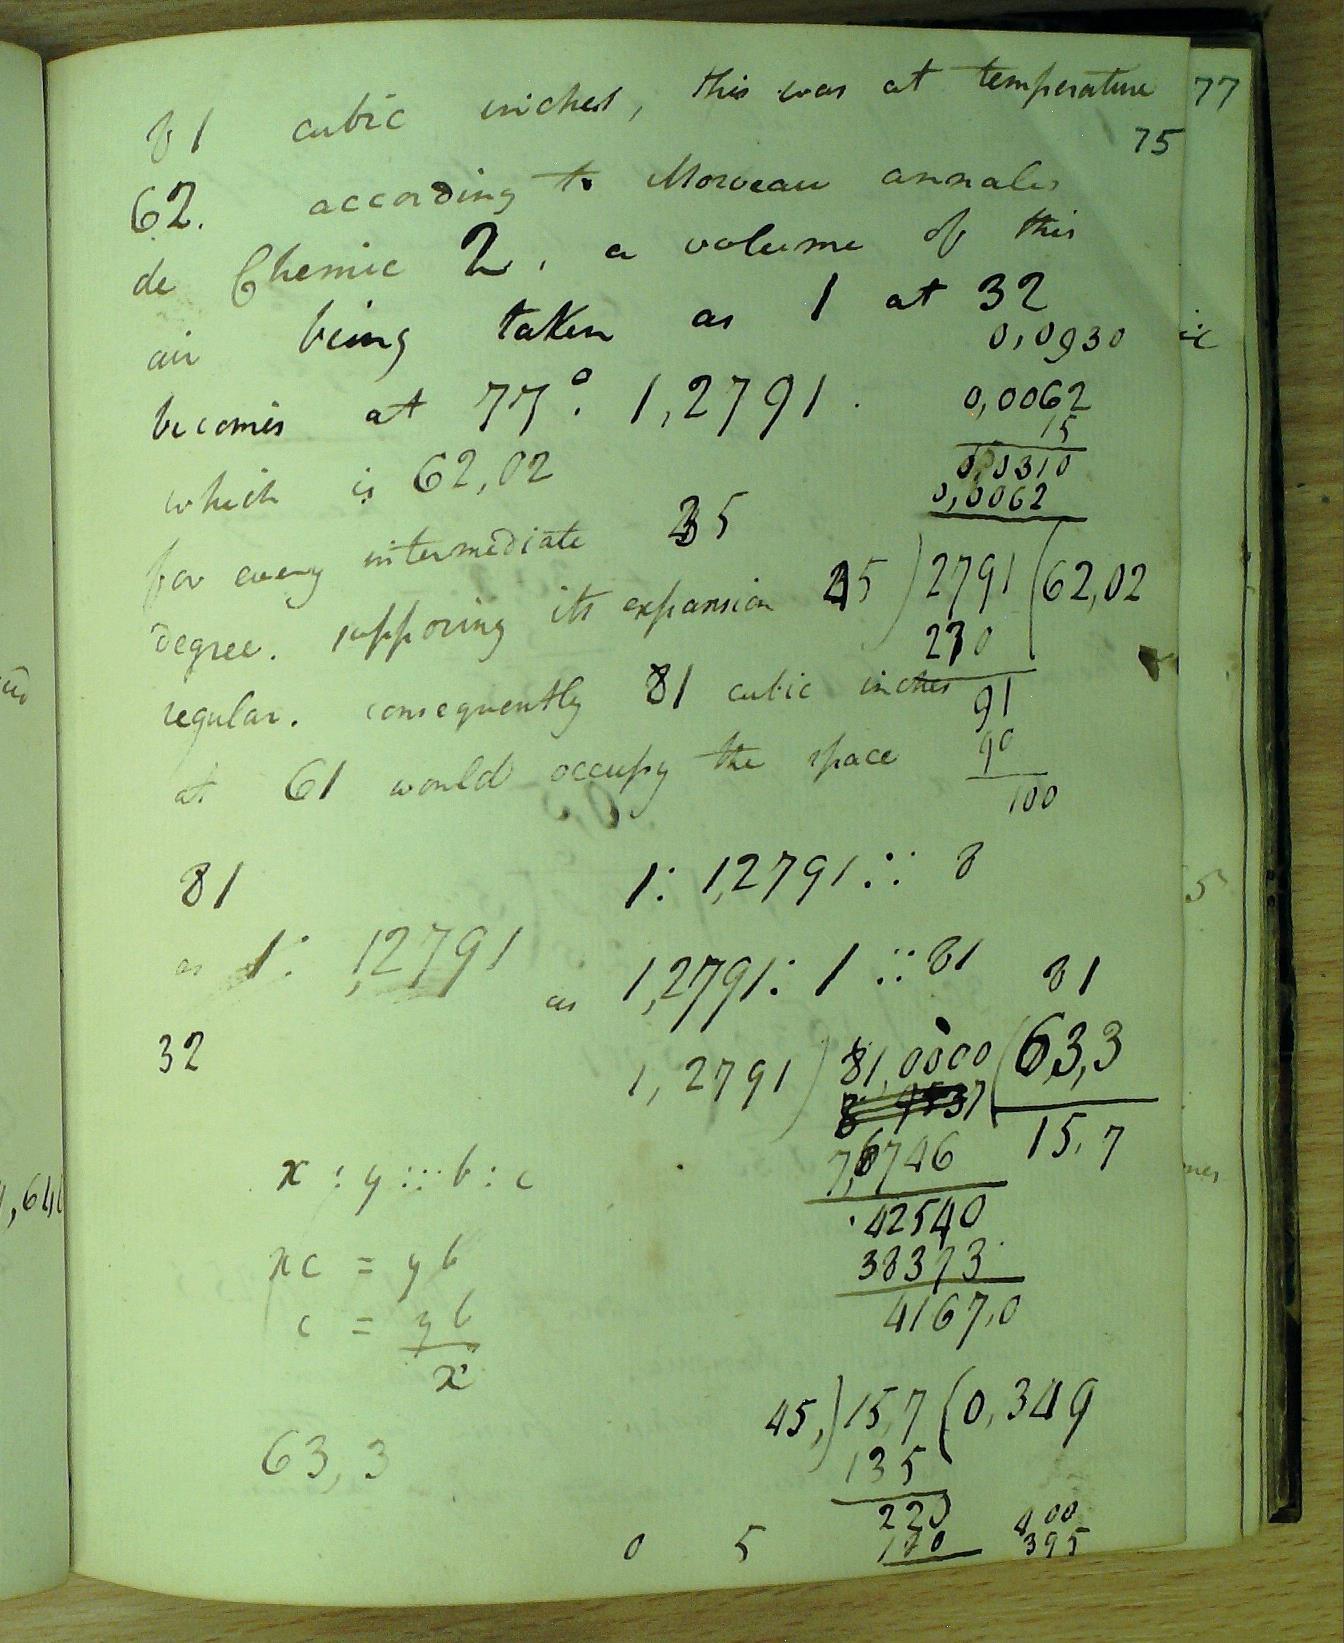 81 cubic inches, this was at temperature
77
75
62. according to Morveau annales
de Chemie 2, a volume of this
air being taken as 1 at 32
0,0930
becomes at 77°. 1,2791.
0,0062
15
which is 62,02
0,0310
0,0062
for every intermediate 35
degree. supposing its expansion 45) 2791 (62,02
270
regular. consequently 81 cubic inches
91
90
at 61 would occupy the space
100
81 1: 1,2791 :: 8
as 1: 1,2791
as 1,2791: 1 :: 81 81
32
1,2791) 81,0000 (63,3
15,7
7,6746
x : y :: b : c
42540
xc = yb
38373
c = yb
x
4167,0
45,) 15,7 (0,349
63,3
135
220
400
180
395
0 5